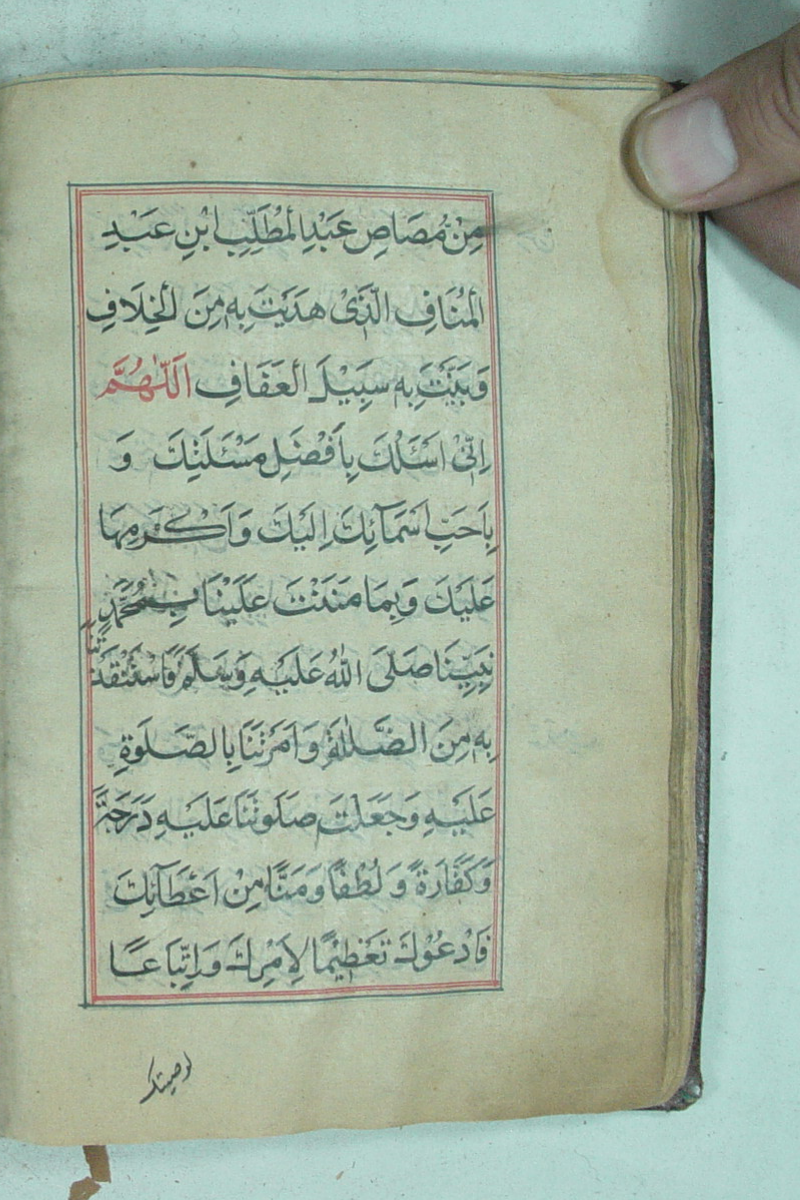 مِنْ مُصَاصِ عَبْدِ الْمُطَّلِبِ ابْنِ عَبْدِ
الْمُنَافِ الَّذِىْ هَدَيْتَ بِهٖ مِنَ الْخِلَافِ
وَبَيَّنْتَ بِهٖ سَبِيْلَ الْعَفَافِ اَللّٰهُمَّ
اِنِّىْ اَسْئَلُكَ بِاَفْضَلِ مَسْئَلَتِكَ وَ
بِاَحَبِّ اَسْمَآئِكَ اِلَيْكَ وَاَكْرَمِهَا
عَلَيْكَ وَبِمَا مَنَنْتَ عَلَيْنَا بِمُحَمَّدٍ
نَبِيِّنَا صَلَّى اللّٰهُ عَلَيْهِ وَسَلَّمَ فَاسْتَنْقَذْتَنَا
بِهٖ مِنَ الضَّلَالَةِ وَاَمَرْتَنَا بِالصَّلٰوةِ
عَلَيْهِ وَجَعَلْتَ صَلٰوتَنَا عَلَيْهِ دَرَجَةً
وَكَفَّارَةً وَلُطْفًا وَمَنًّا مِنْ اَعْطَآئِكَ
فَاَدْعُوْكَ تَعْظِيْمًا لِاَمْرِكَ وَاتِّبَاعًا
لوصيتك